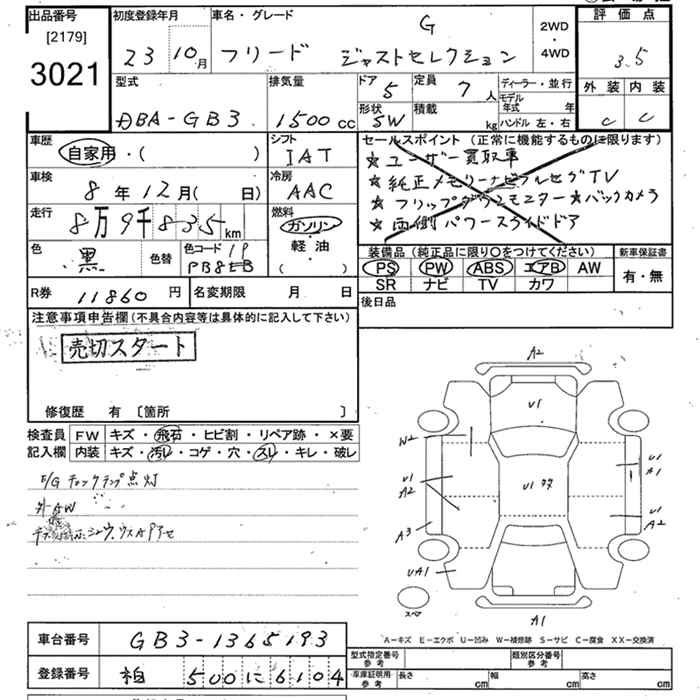 出品番号
[2179]
3021
初度登録年月
23 10月
車名・グレード
G
フリード ジャストセレクション
2WD
・
4WD
評価点
3.5
外装 内装
C C
型式
DBA-GB3
排気量
1500cc
ドア
5
定員
7人
形状
5W
積載
kg
ディーラー・並行
モデル年式 年
ハンドル 左・右
車歴
自家用・( )
シフト
IAT
車検
8年12月( 日)
冷房
AAC
走行
8万9千835km
燃料
ガソリン・
軽油・
( )
色
黒
色替
色コード
PB8EB
セールスポイント (正常に機能するものに限ります)
★ユーザー買取車
★純正メモリーナビフルセグTV
★フリップダウンモニター★バックカメラ
★両側パワースライドドア
装備品 (純正品に限り○をつけてください)
PS PW ABS エアB AW
SR ナビ TV カワ
新車保証書
有・無
R券 11860円
名変期限 月 日
後日品
注意事項申告欄(不具合内容等は具体的に記入して下さい)
売切スタート
修復歴 有 〔箇所 〕
検査員
記入欄
FW キズ・飛石・ヒビ割・リペア跡・×要
内装 キズ・汚レ・コゲ・穴・スレ・キレ・破レ
E/G チェックランプ点灯
外AW
A2
U1
W2
U1
A2
U1 タタ
U1
A1
U1
A2
A3
UA1
スペア
A1
A-キズ E-エクボ U-凹み W-補修跡 S-サビ C-腐食 XX-交換済
車台番号 GB3-1365193
登録番号 柏 500に6104
型式指定番号
参考
類別区分番号
参考
車庫証明用
参考
長さ cm
幅 cm
高さ cm